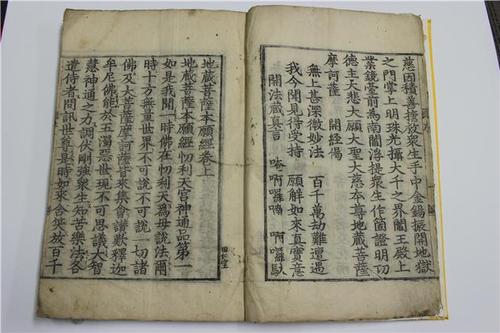 慈因積善誓救衆生手中金錫振開地獄
之門掌上明珠光攝大千之界閻王殿上
業鏡臺前為南閻浮提衆生作箇證明功
德主大悲大願大聖大慈本尊地藏菩薩
摩訶薩 開經偈
無上甚深微妙法 百千萬劫難遭遇
我今聞見得受持 願解如來真實意
開法藏真言 唵啊囉喃 啊囉馱
地藏菩薩本願經卷上
地藏菩薩本願經忉利天宮神通品第一
如是我聞一時佛在忉利天為母說法爾
時十方無量世界不可說不可說一切諸
佛及大菩薩摩訶薩皆來集會讃歎釋迦
牟尼佛能於五濁惡世現不可思議大智
慧神通之力調伏剛強衆生知苦樂法各
遣侍者問訊世尊是時如來含笑放百千